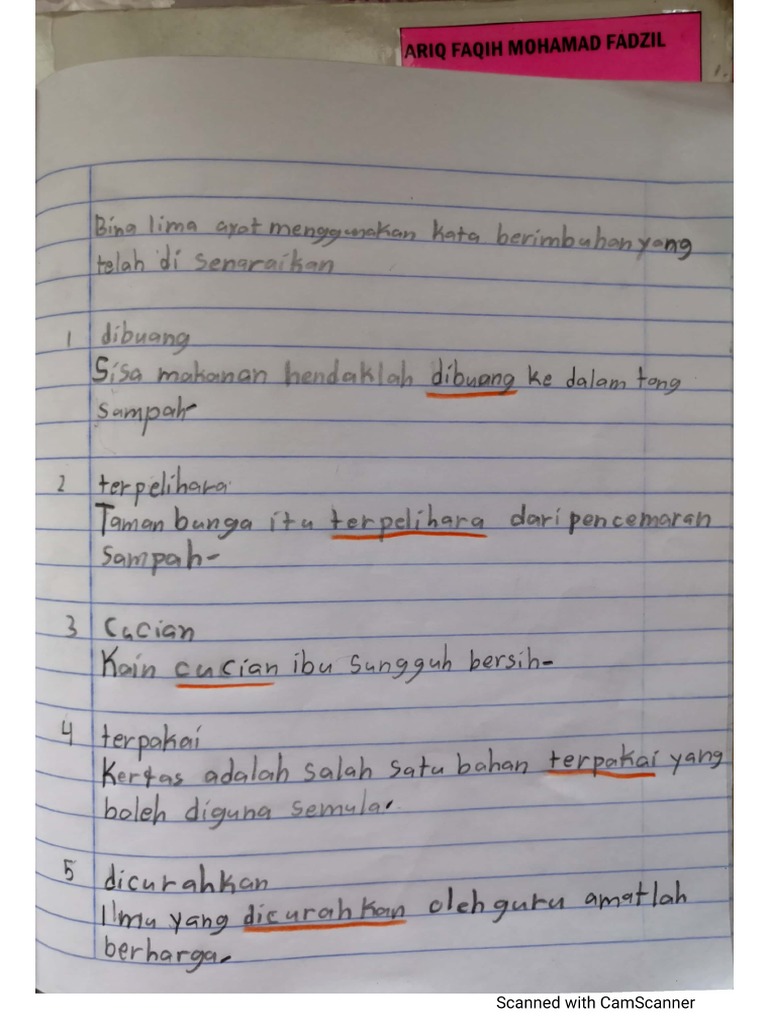 ARIQ FAQIH MOHAMAD FADZIL
Bina lima ayat menggunakan kata berimbuhan yang
telah di senaraikan
1 dibuang
Sisa makanan hendaklah dibuang ke dalam tong
sampah
2 terpelihara
Taman bunga itu terpelihara dari pencemaran
sampah-
3 Cucian
Kain cucian ibu sungguh bersih-
4 terpakai
Kertas adalah salah satu bahan terpakai yang
boleh diguna semula.
5 dicurahkan
Ilmu yang dicurahkan oleh guru amatlah
berharga.
Scanned with CamScanner